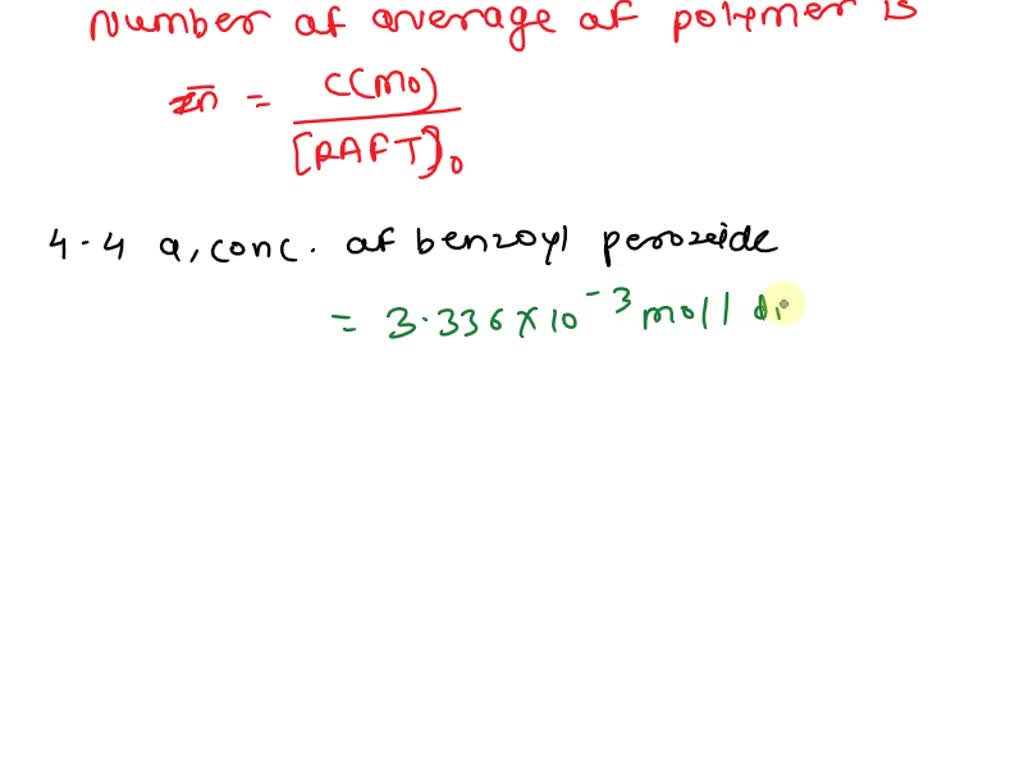 Number of average of polymer is
x̄n = C(M0)
[RAFT]0
4.4 a, conc. of benzoyl perozeide
= 3.336 x 10-3 mol/ di